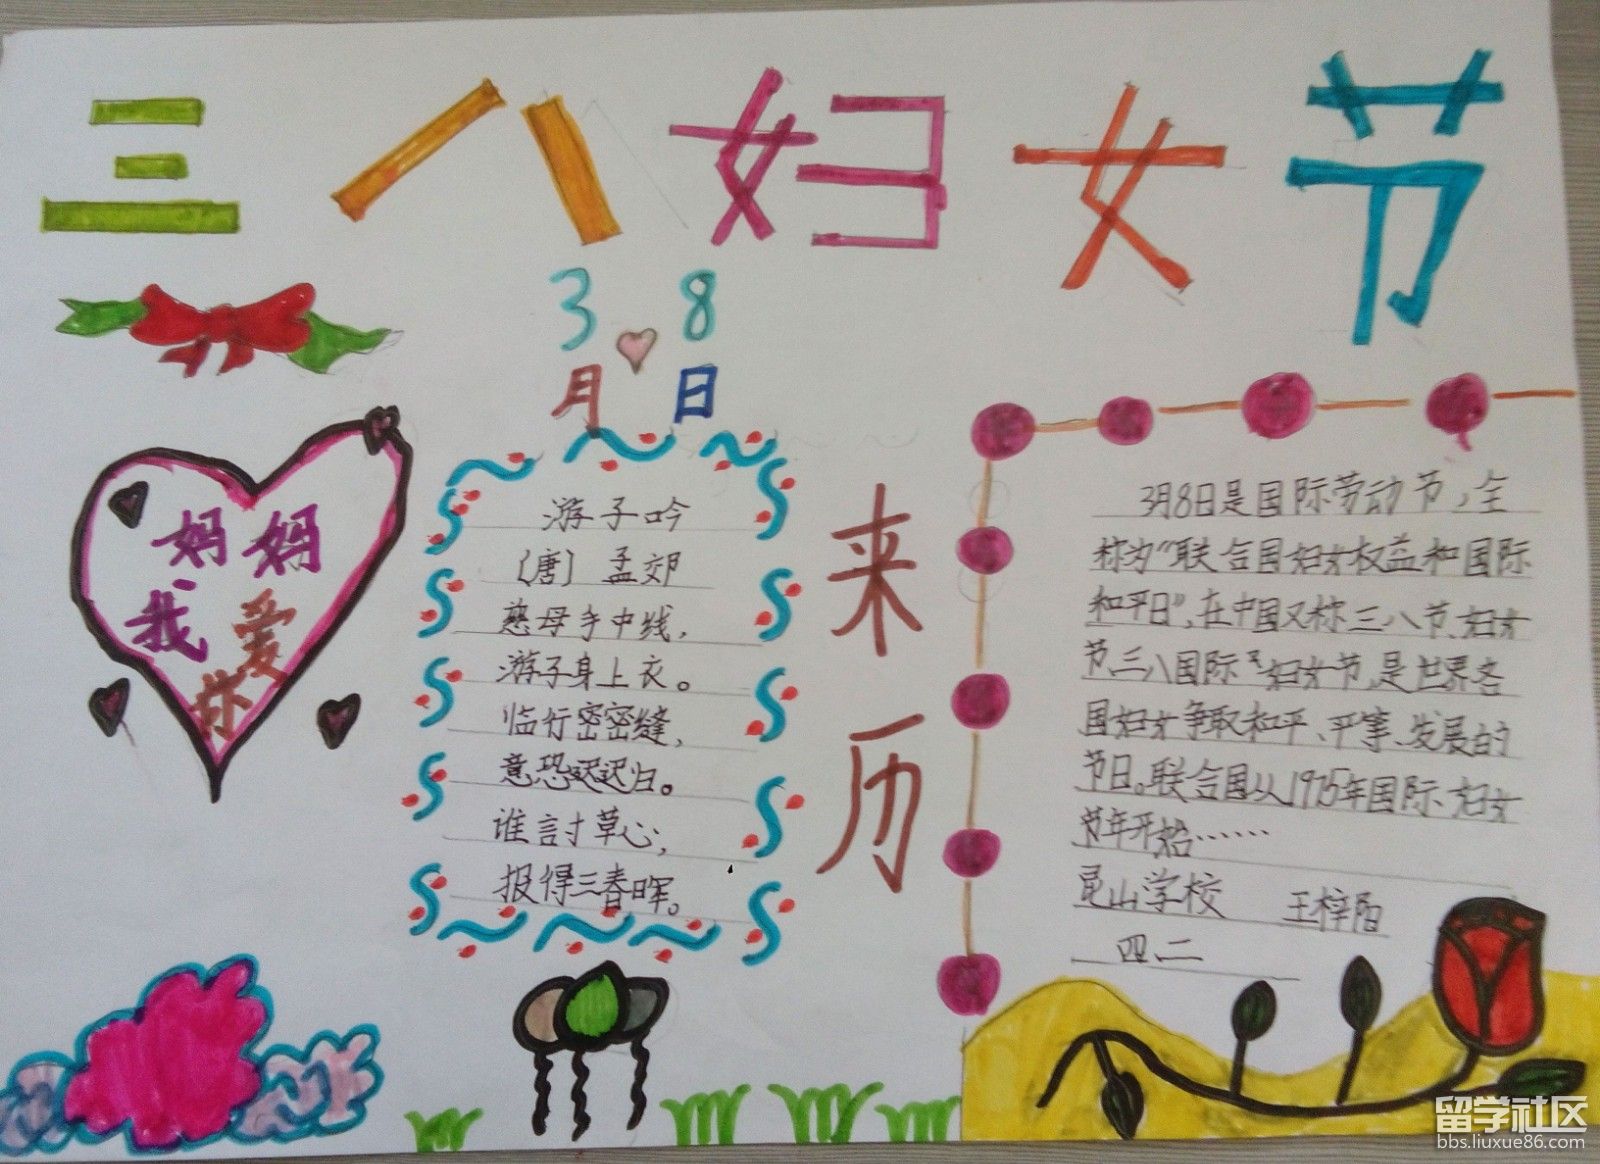 三八妇女节
3月8日
妈妈
我爱
你
游子吟
〔唐〕孟郊
慈母手中线，
游子身上衣。
临行密密缝，
意恐迟迟归。
谁討草心，
报得三春晖。
来历
3月8日是国际劳动节，全
称为“联合国妇女权益和国际
和平日”，在中国又称三八节、妇女
节、三八国际妇女节，是世界各
国妇女争取和平、平等、发展的
节日。联合国从1975年国际妇女
节年开始……
昆山学校 王梓
四.二
留学社区
bbs.liuxue86.com